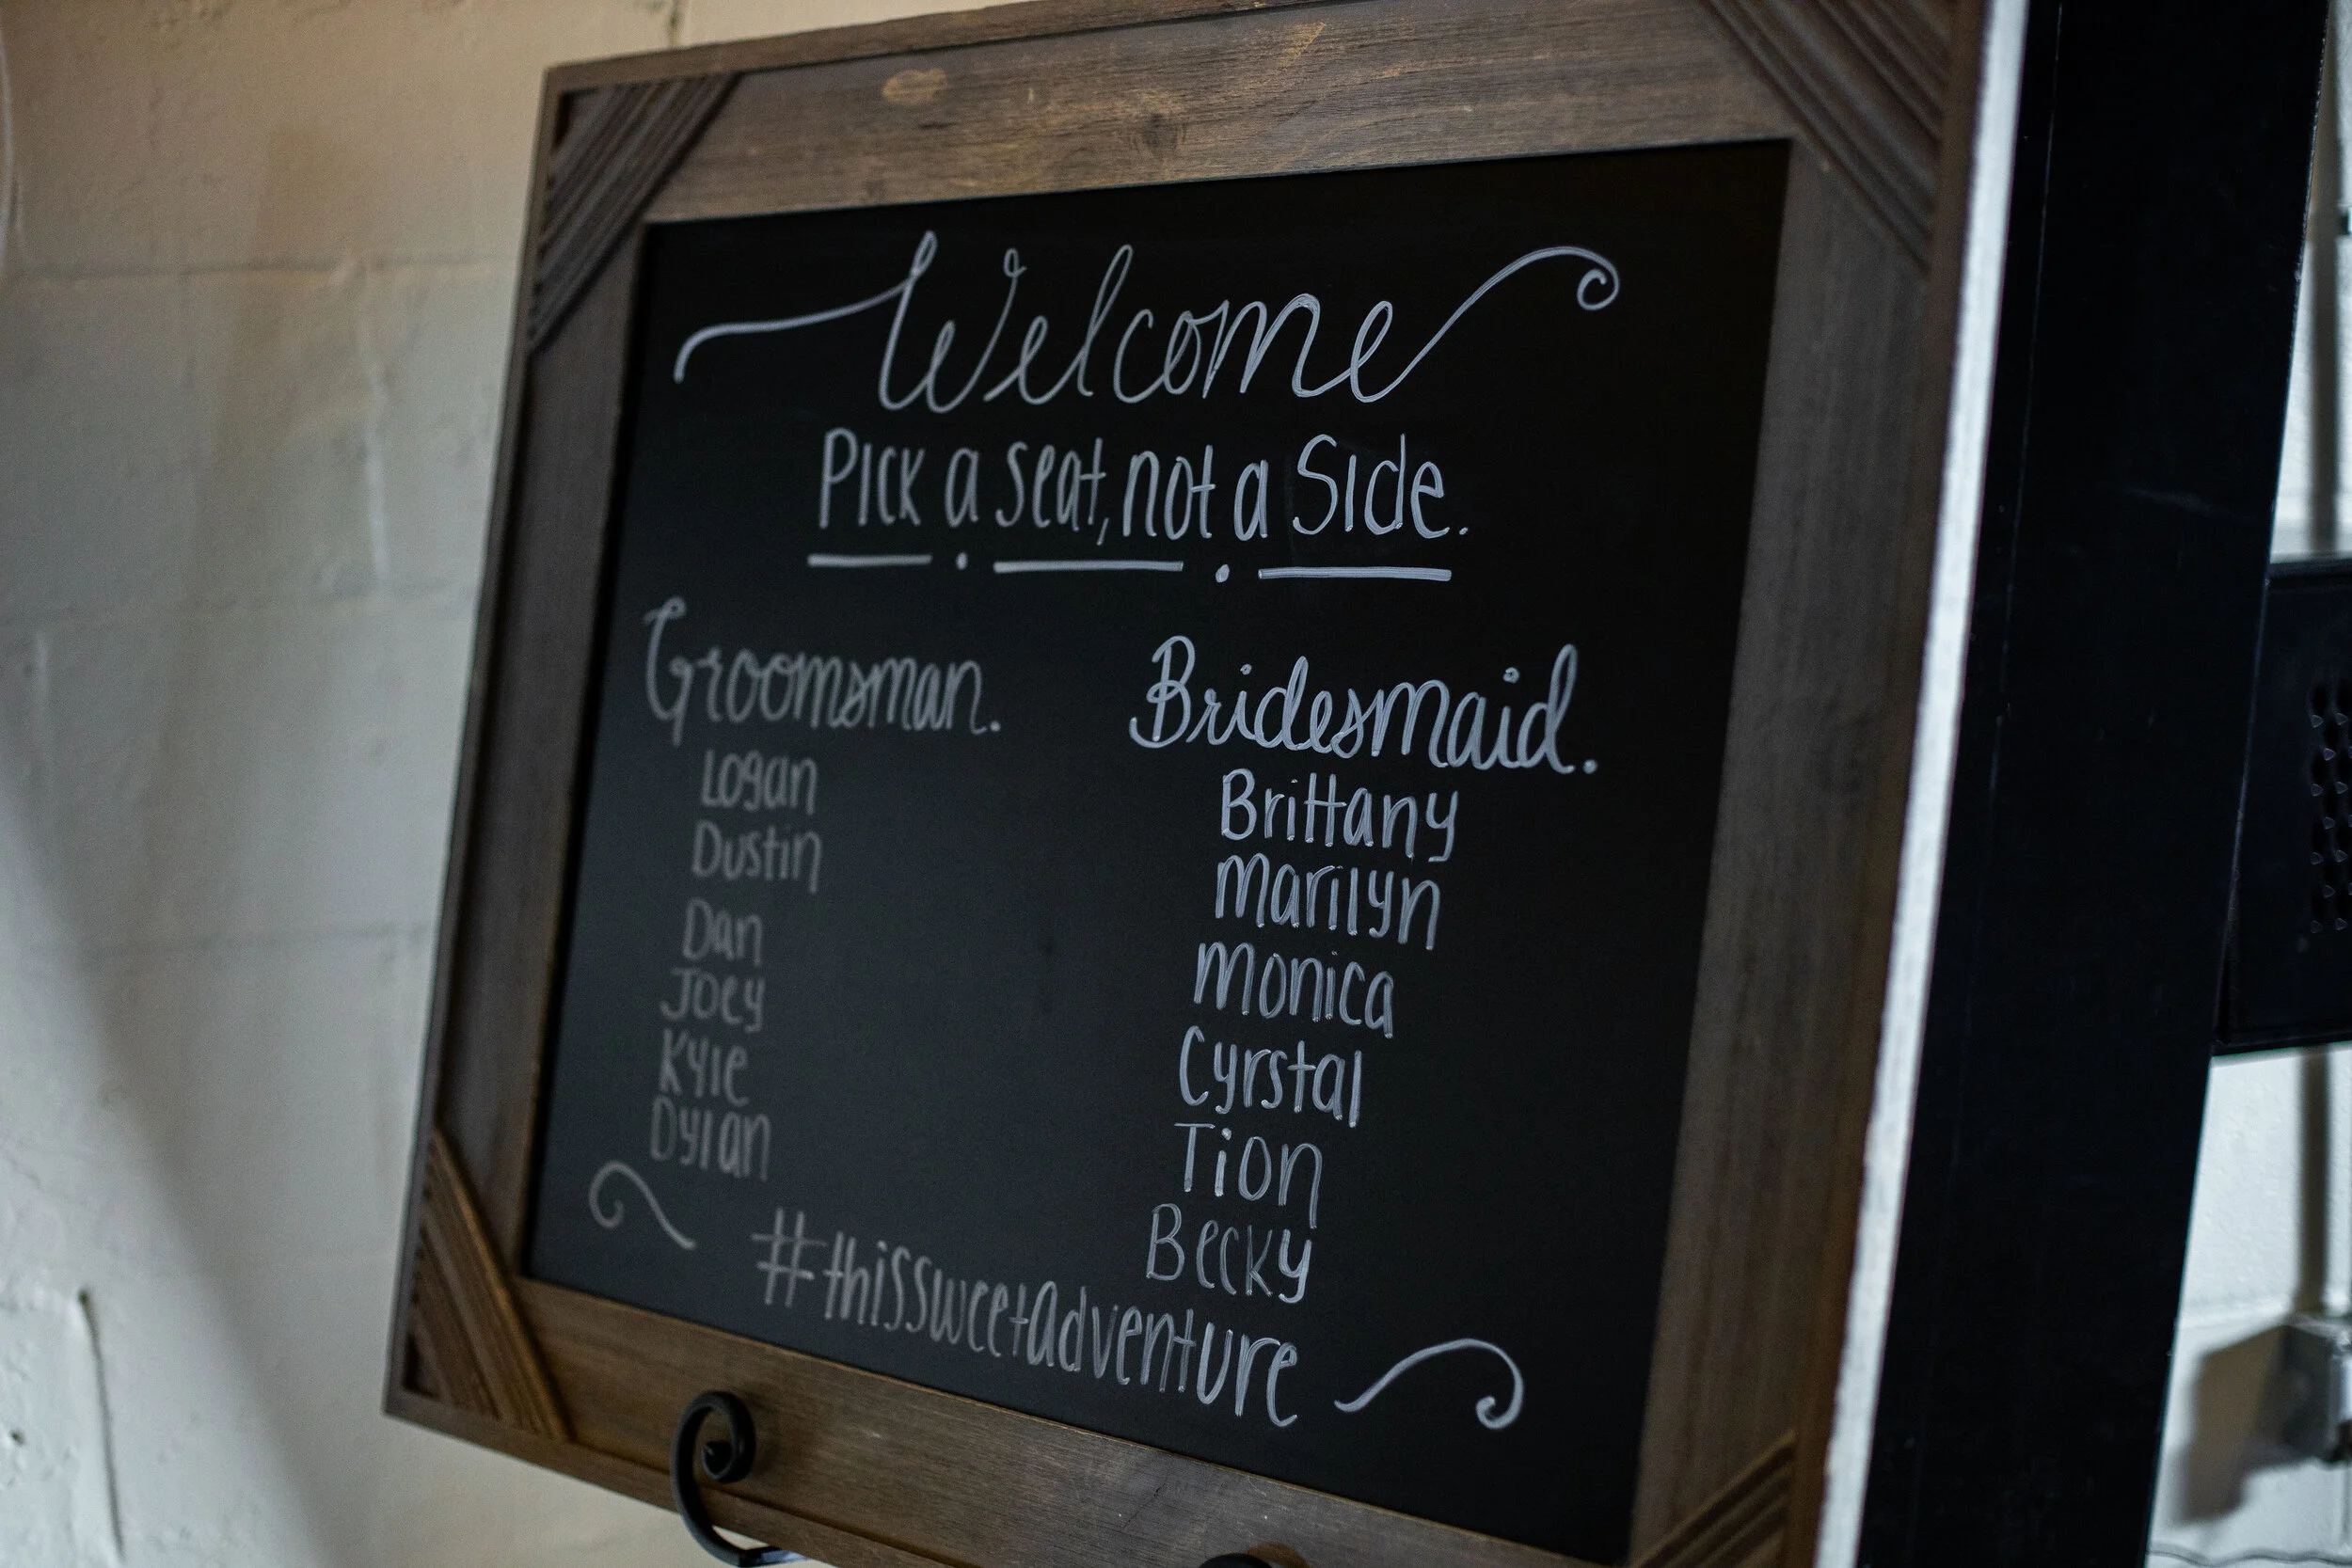 Welcome
Pick a seat, not a Side.
Groomsman.
Logan
Dustin
Dan
Joey
Kyle
Dylan
Bridesmaid.
Brittany
Marilyn
Monica
Cyrstal
Tion
Becky
#thissweetadventure